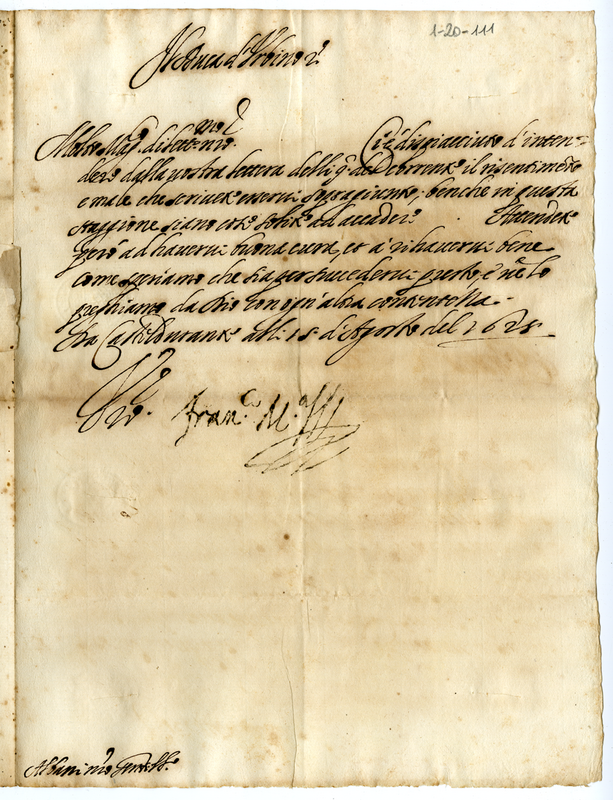 1-20-111
Il Duca d'Urbino
Molto Mag.co diletti.mo n.ro Ci è dispiacciuto d'inten=
dere dalla vostra lettera delli 9 del corrente il risentimento
e male che scrivete esservi sopragiunto, benche in questa
staggione siano cose solite ad accadere. Attendete
però ad havervi buona cura, et à rihavervi bene
come speriamo che sia per succedervi presto, è ve lo
preghiamo da Dio con ogn'altra contentezza.
Da Casteldurante alli 18 d'Agosto del 1625
Fran.co M.a
Albani